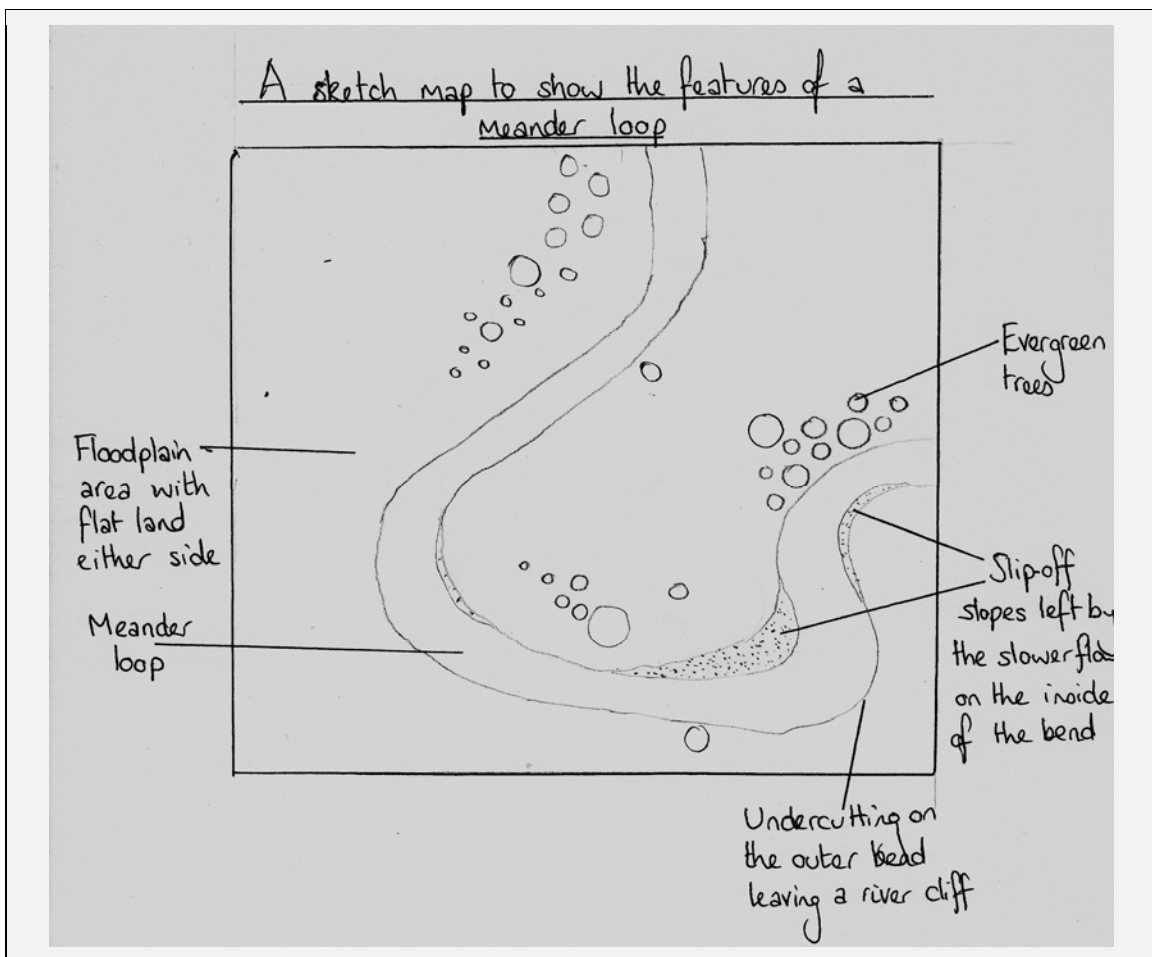 A sketch map to show the features of a
Meander loop
Evergreen
trees
Floodplain
area with
flat land
either side
Meander
loop
Slip-off
slopes left by
the slower flow
on the inside
of the bend
Undercutting on
the outer bead
leaving a river cliff